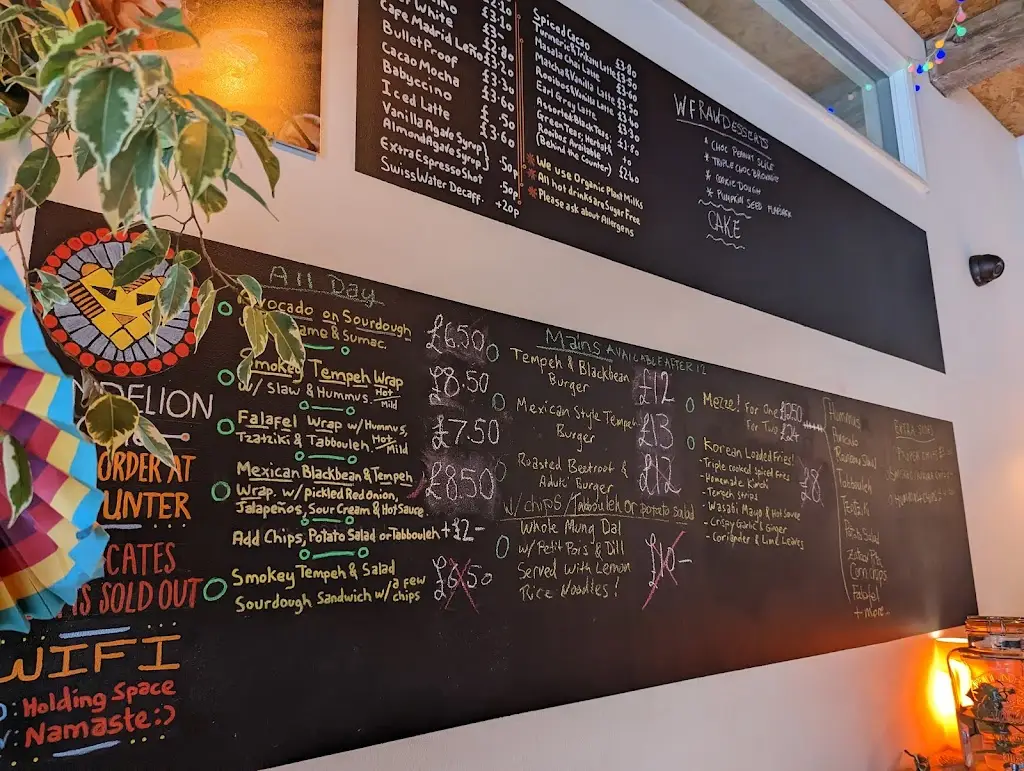 White £3.10
Cafe Madrid Leño £3.20
Bullet Proof
Cacao Mocha £3.30
Babyccino
Iced Latte
Vanilla Agave Syrup
Almond Agave Syrup .50p
Extra Espresso Shot .50p
Swiss Water Decaff. +20p
Spiced Cacao £3.80
Masala Chai Latte
Matcha & Vanilla Latte
Rooibos & Vanilla Latte
Earl Grey Latte
Assorted Black Teas,
Green Teas, Herbal &
Rooibos Available
(Behind the Counter)
* We use Organic Plant Milks
* All hot drinks are Sugar Free
* Please ask about Allergens
WF RAW DESSERTS
* CHOC PEANUT SLICE
* TRIPLE CHOC BROWNIE
* COOKIE DOUGH
* PUMPKIN SEED FLAPJACK
CAKE
DELION
ORDER AT
UNTER
CATES
S SOLD OUT
WIFI
: Holding Space
: Namaste :)
All Day
vocado on Sourdough
ame & Sumac. £6.50
Smokey Tempeh Wrap
w/ Slaw & Hummus. Hot Mild £8.50
Falafel Wrap w/ Hummus,
Tzatziki & Tabbouleh. Hot Mild £7.50
Mexican Blackbean & Tempeh
Wrap. w/ pickled Red Onion,
Jalapeños, Sour Cream & Hot Sauce £8.50
Add Chips, Potato Salad or Tabbouleh +£2-
Smokey Tempeh & Salad
Sourdough Sandwich w/ a few
chips £6.50
Mains AVAILABLE AFTER 12
Tempeh & Blackbean
Burger £12
Mexican Style Tempeh
Burger £13
Roasted Beetroot &
Aduki Burger £12
w/ chips / Tabbouleh or potato salad
Whole Mung Dal
w/ Petit Pois & Dill
Served with Lemon
Rice Noodles! £10-
Mezze! For One
For Two £24
Korean Loaded Fries!
- Triple cooked spiced fries
- Homemade Kimchi
- Tempeh strips
- Wasabi Mayo & Hot Sauce
- Crispy Garlic & Ginger
- Coriander & Lime Leaves
£8
Hummus
Avocado
Tabbouleh
Potato Salad
Corn chips
Falafel
+ more
EXTRA SIDES